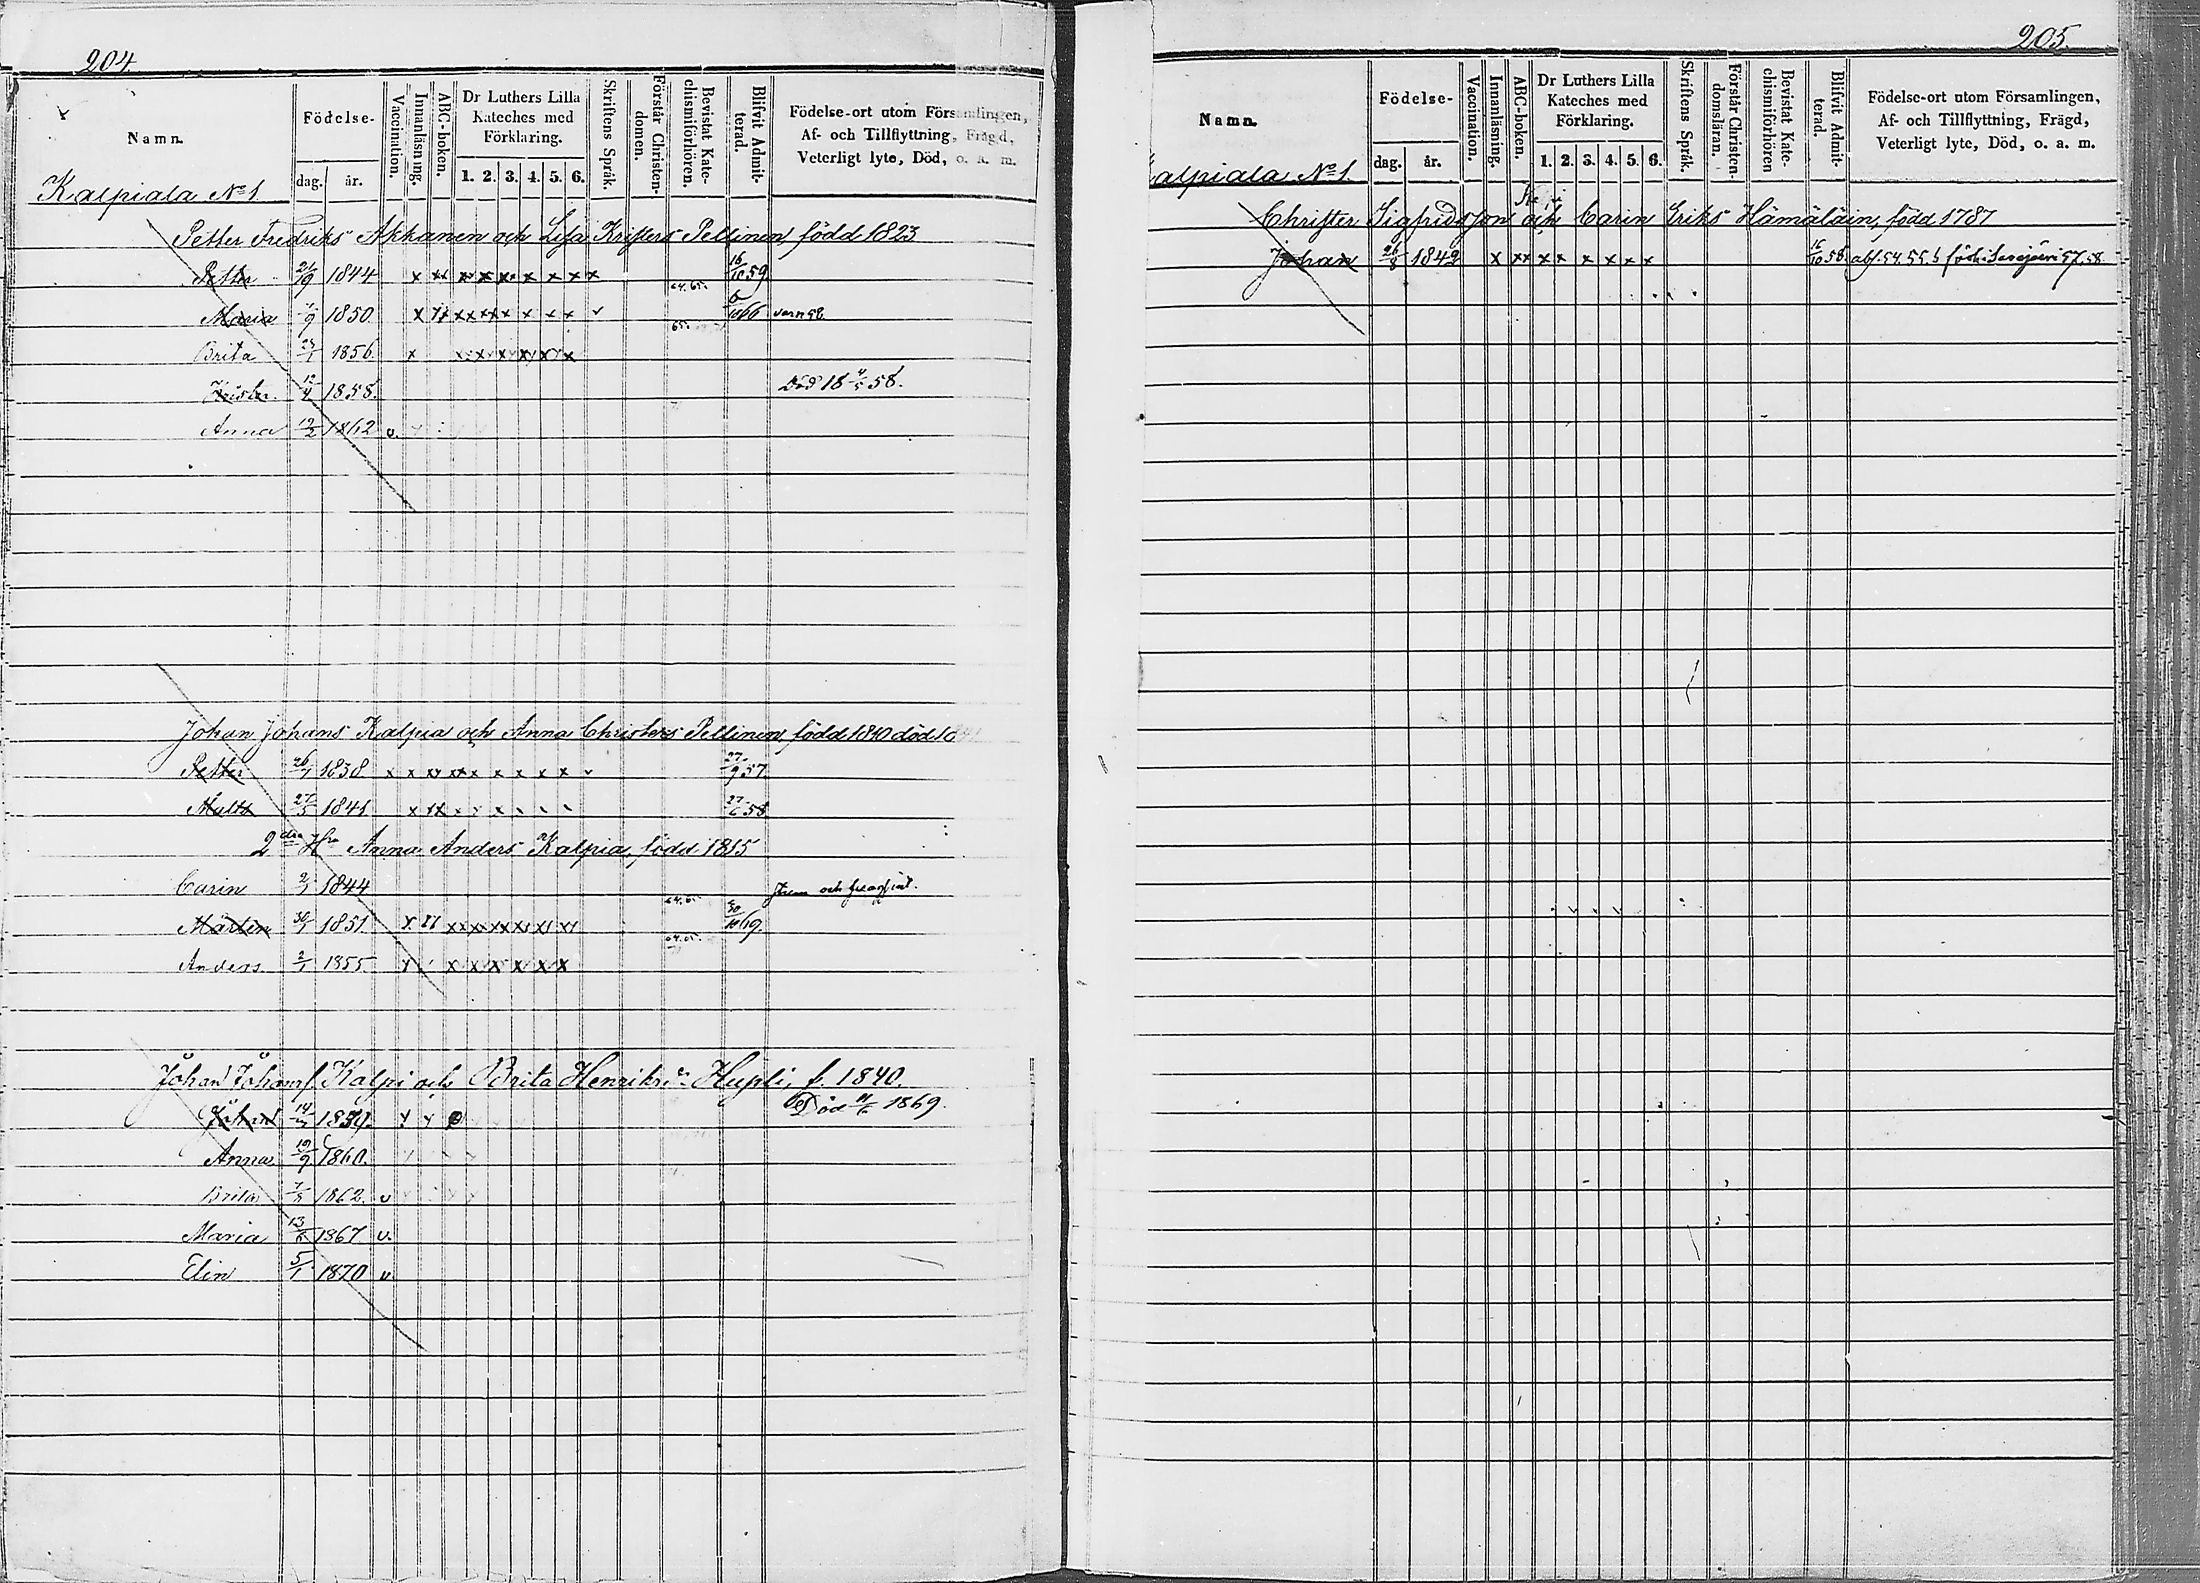 204.
Namn.
Födelse-
dag.
år.
Vaccination.
Innanläsning.
ABC-boken.
Dr Luthers Lilla
Kateches med
Förklaring.
1. 2. 3. 4. 5. 6.
Skriftens Språk.
Förstår Christen-
domen.
Bevistat Kate-
chismiförhören.
Blifvit Admit-
terad.
Födelse-ort utom Församlingen,
Af- och Tillflyttning, Frägd,
Veterligt lyte, Död, o. a. m.
Kalpiala No 1.
Petter Fredriks Akkanen och Lisa Kristers Pellinen, född 1823
Petter 21/9 1844 x xx xx x x x x x x 16/10 59
Maria 7/9 1850. x xx xx x x x x 64. 65. 6/10 66 varn 58
Brita 1856. x x x x x x x 65.
Krister 12/4 1858. Död 18 4/5 58.
Anna 19/2 1862 v.
Johan Johans Kalpia och Anna Christers Pellinen, född 1810 död 18
Petter 26/1 1838 x x xx xx x x x x x 27/9 57
Matts 27/5 1841 x xx 27/6 58
2dra Hu Anna Anders Kalpia, född 1815
Carin 2/1 1844 och
Mårten 30/1 1851. x xx xx xx xx xx xx 64. 65. 30/10 69.
Anders 2/1 1855 x x x x x x 64. 65.
Johan Johansf. Kalpi och Brita Henriksdr Hupli, f. 1840.
Johan 14/ 1859. Död 11/6 1869.
Anna 19/9 1860.
Brita 7/8 1862. v
Maria 13/6 1867 v.
Elin 5/1 1870 v.
205.
Namn.
Födelse-
dag.
år.
Vaccination.
Innanläsning.
ABC-boken.
Dr Luthers Lilla
Kateches med
Förklaring.
1. 2. 3. 4. 5. 6.
Skriftens Språk.
Förstår Christen-
domsläran.
Bevistat Kate-
chismiförhören
Blifvit Admit-
terad.
Födelse-ort utom Församlingen,
Af- och Tillflyttning, Frägd,
Veterligt lyte, Död, o. a. m.
alpiala No 1.
Christer Sigfridsson och Carin Eriks Hämäläin, född 1787
Johan 26/8 1842 x xx x x x x x x 16/10 58 abs. 54. 55. 57. 58